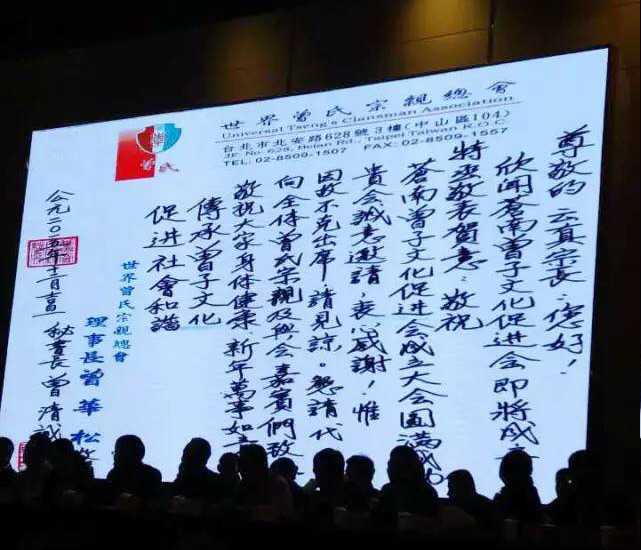 世界曾氏宗親總會
Universal Tseng's Clansman Association
台北市北安路628號3樓(中山區104)
3F, No-628, Beian Rd., Taipei Taiwan R.O.C.
TEL: 02-8509-1507 FAX: 02-8509-1557
曾氏
尊敬的云真宗長:您好!
欣聞蒼南曾子文化促進会即將成立
特函敬表賀意,敬祝
蒼南曾子文化促進会成立大会圓滿成功
貴会誠意邀請,衷心感謝!惟
因故不克出席,請見諒。懇請代
向全体曾氏宗親及與会嘉賓們致
敬祝大家身体健康 新年萬事如意
傳承曾子文化
促进社會和諧
世界曾氏宗親總會
理事長曾華松
秘書長曾清